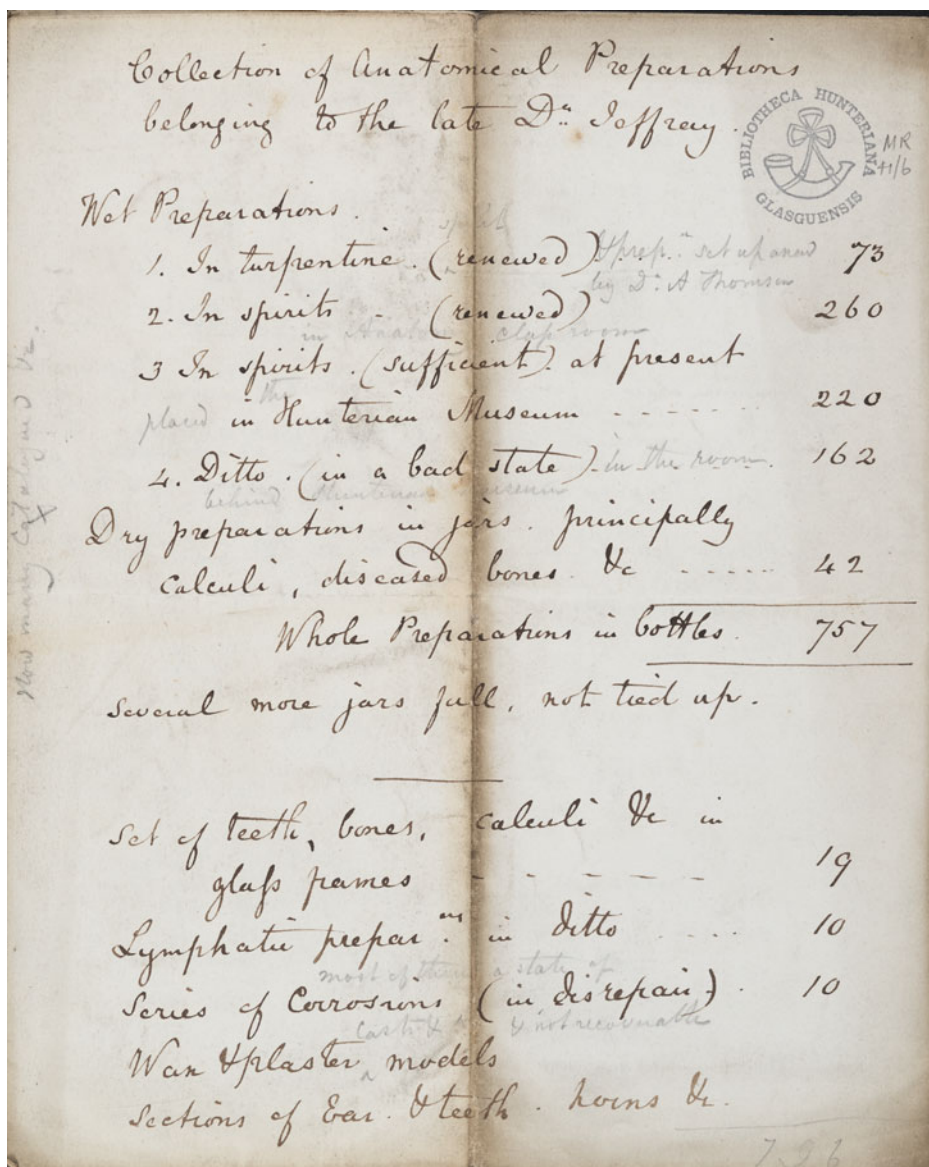 Collection of Anatomical Preparations
belonging to the late Dr. Jeffray.
BIBLIOTHECA HUNTERIANA
GLASGUENSIS
MR
41/6
Wet Preparations.
1. In turpentine. (renewed) 73
& prep.n set up anew
by Dr. A Thomson
2. In spirits (renewed) 260
in class room
3 In spirits. (sufficient). at present
placed in the Hunterian Museum 220
4. Ditto. (in a bad state). in the room. 162
behind Hunterian Museum
Dry preparations in jars. principally
calculi, diseased bones. &c 42
Whole Preparations in bottles. 757
several more jars full, not tied up.
How many Catalogued &c.
X
Set of teeth, bones, calculi &c in
glass frames 19
Lymphatic prepar.ns in ditto 10
most of them a state of
Series of Corrosions (in disrepair). 10
Casts & & not recoverable
Wax & plaster models
Sections of Ear. & teeth. horns &c.
796